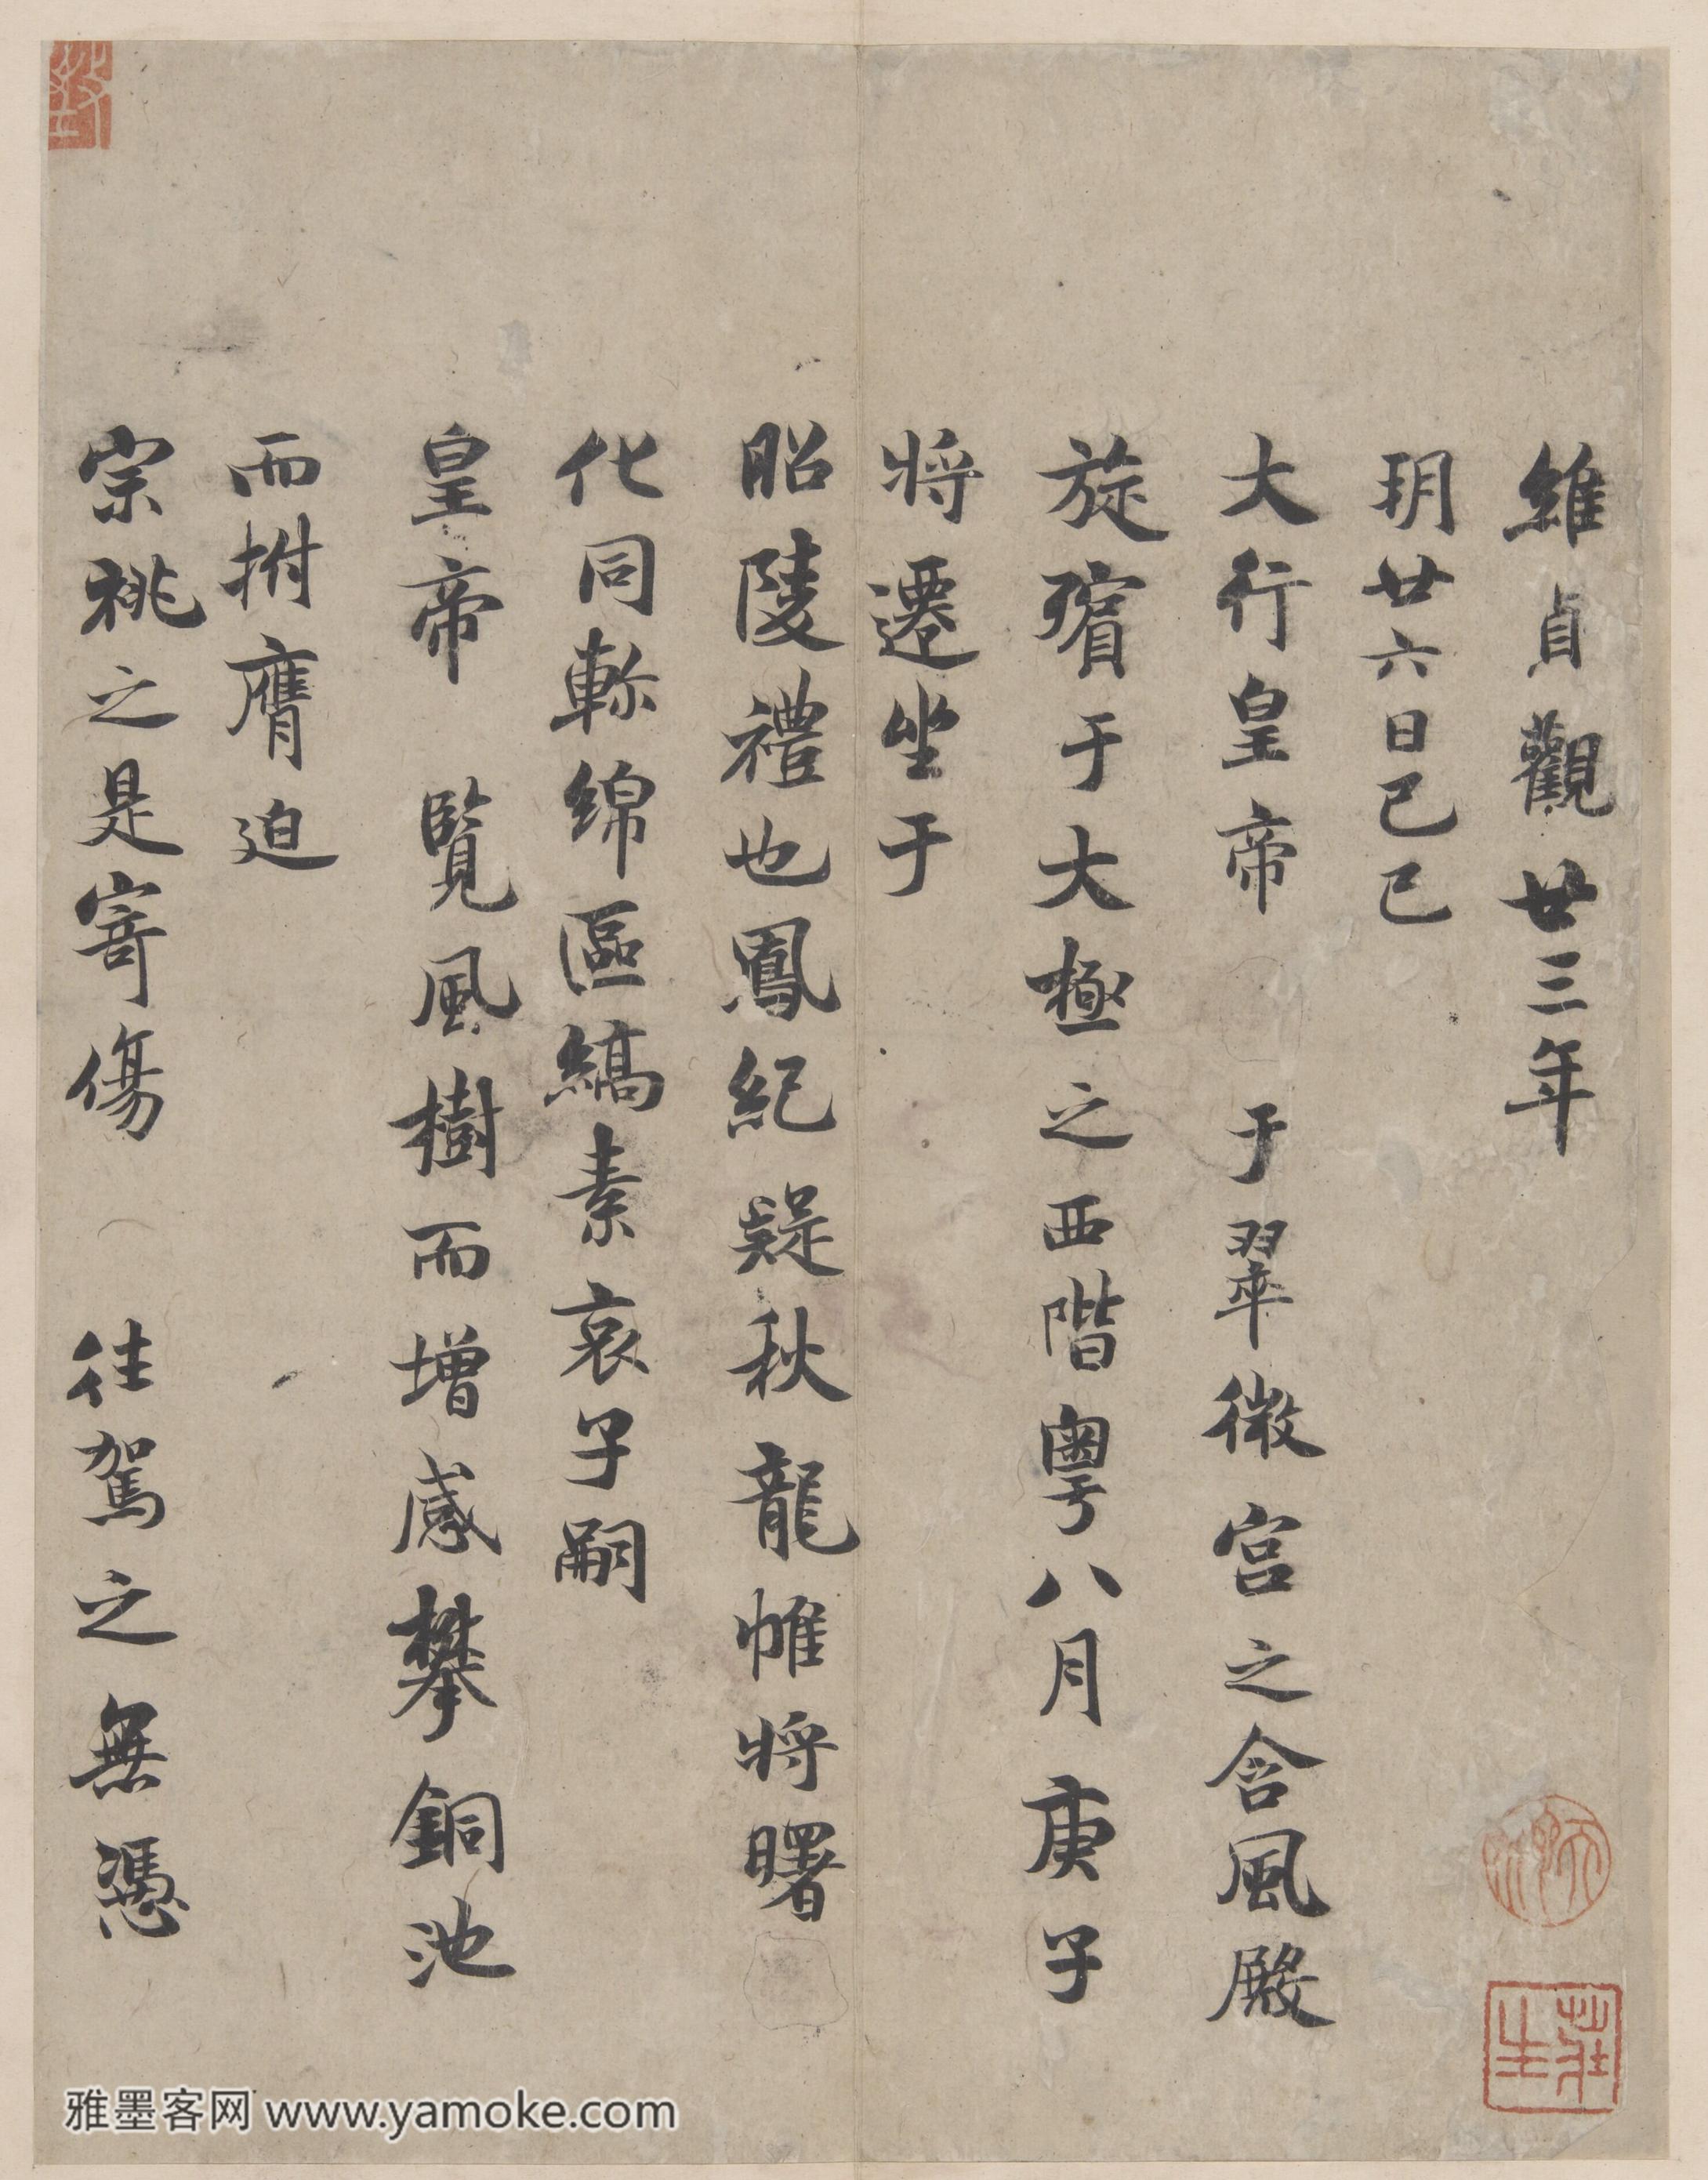 維貞觀廿三年
玥廿六日已已
大行皇帝 于翠微宮之含風殿
旋殯于大極之西階粵八月庚子
将遷坐于
昭陵禮也鳳紀疑秋龍帷将曙
化同軫綿區縞素哀子嗣
皇帝 覧風樹而增感攀銅池
而拊膺迫
宗祧之是寄傷 往駕之無憑
雅墨客网 www.yamoke.com